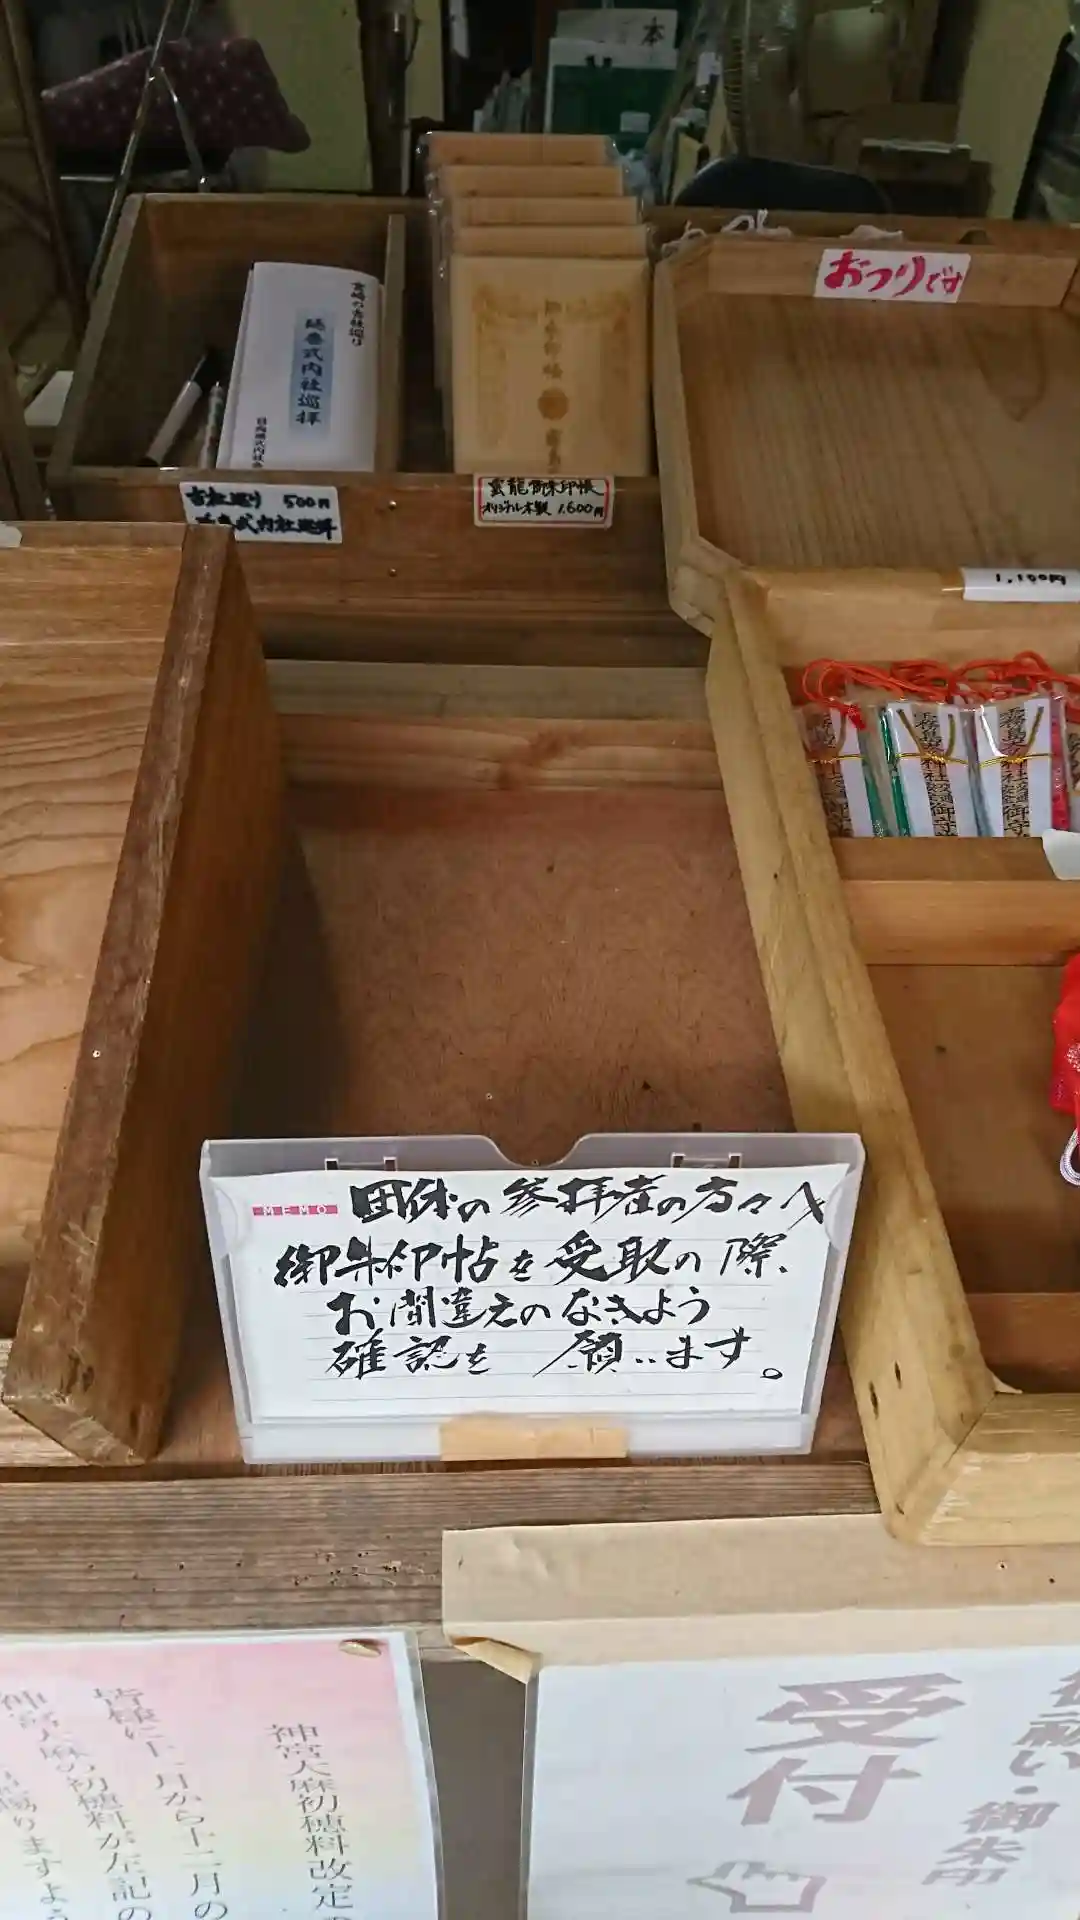 本
宮崎の古社巡り
延喜式内社巡拝
御朱印帳
おつりです
古社巡り 500円
式内社巡拝
雲龍御朱印帳
オリジナル木製 1,600円
1,100円
霧島
御守
MEMO
団体の参拝者の方々へ
御朱印帖を受取の際、
お間違えのなきよう
確認を願います。
神宮大麻初穂料改定
皆様に十月から十二月の
神宮大麻の初穂料が左記の
賜りますよう
祓い・御朱印
受付